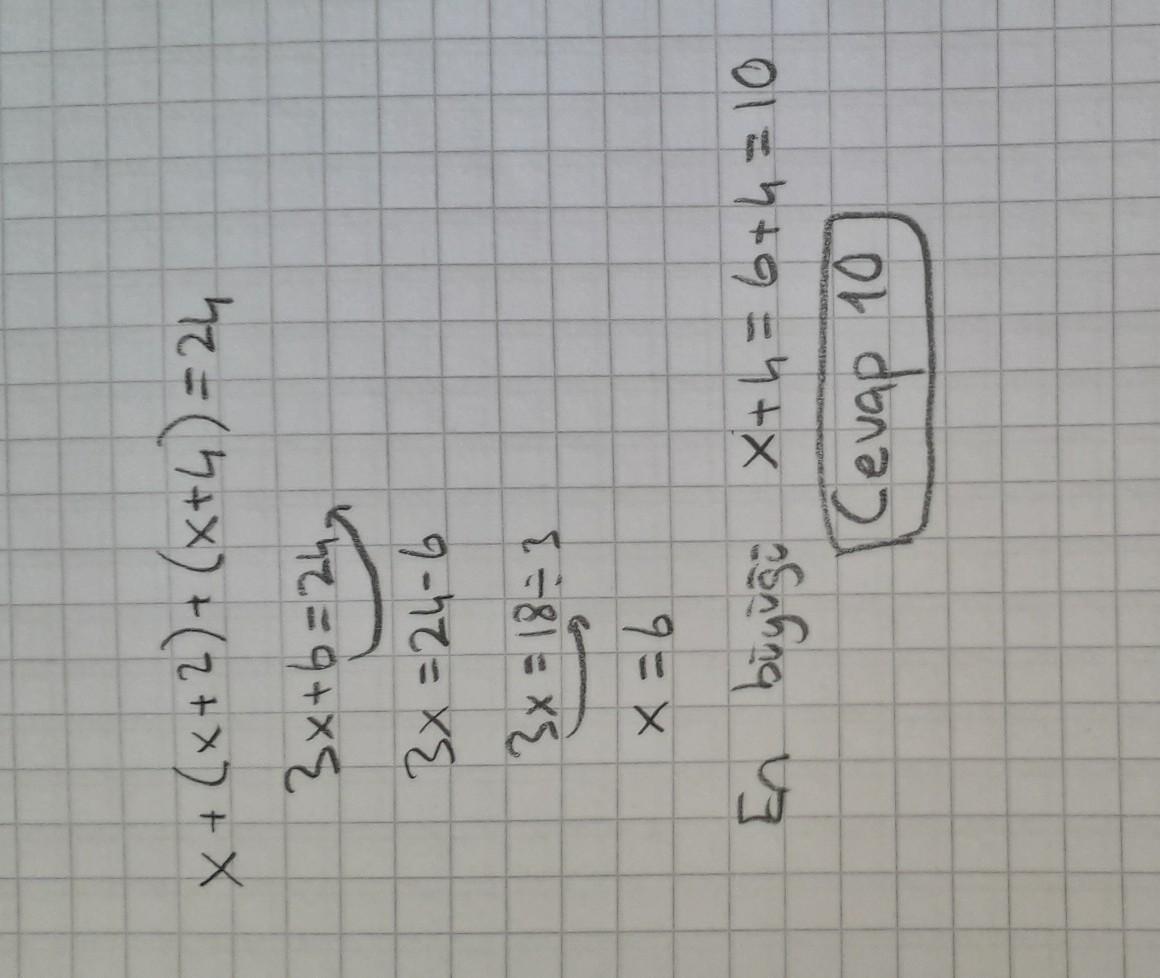 x + (x+2) + (x+4) = 24
3x + 6 = 24
3x = 24 - 6
3x = 18 ÷ 3
x = 6
En büyüğü x+4 = 6+4 = 10
Cevap 10